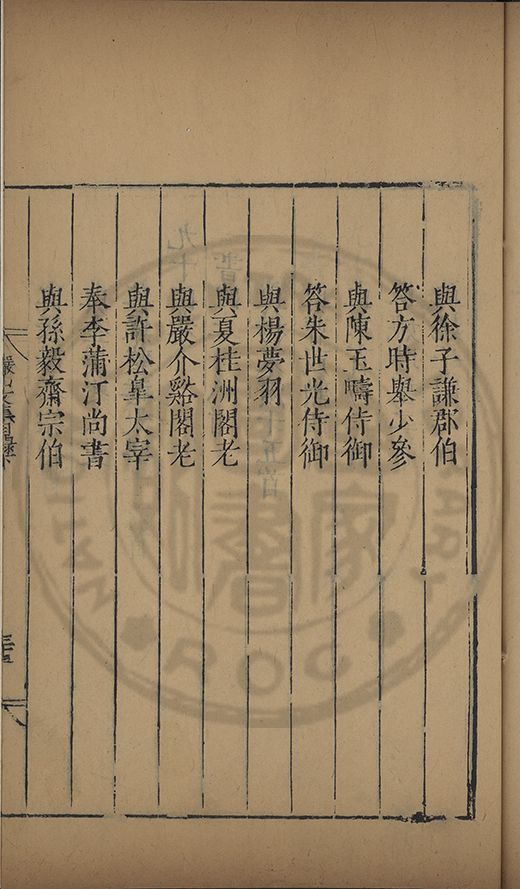 與徐子謙郡伯
答方時舉少參
與陳玉疇侍御
答朱世光侍御
與楊夢羽
與夏桂洲閣老
與嚴介谿閣老
與許松皐太宰
奉李蒲汀尚書
與孫毅齋宗伯